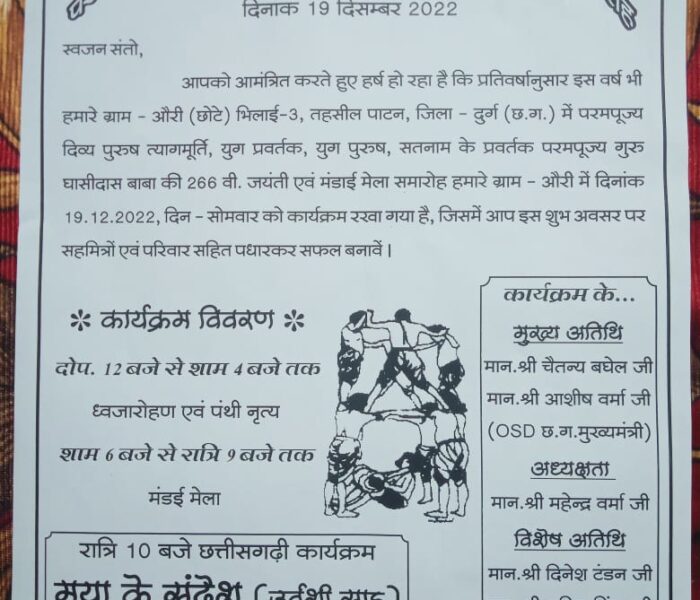 दिनाक 19 दिसम्बर 2022
स्वजन संतो,
आपको आमंत्रित करते हुए हर्ष हो रहा है कि प्रतिवर्षानुसार इस वर्ष भी
हमारे ग्राम - औरी (छोटे) भिलाई-3, तहसील पाटन, जिला - दुर्ग (छ.ग.) में परमपूज्य
दिव्य पुरुष त्यागमूर्ति, युग प्रवर्तक, युग पुरुष, सतनाम के प्रवर्तक परमपूज्य गुरु
घासीदास बाबा की 266 वी. जयंती एवं मंडाई मेला समारोह हमारे ग्राम - औरी में दिनांक
19.12.2022, दिन - सोमवार को कार्यक्रम रखा गया है, जिसमें आप इस शुभ अवसर पर
सहमित्रों एवं परिवार सहित पधारकर सफल बनावें।
* कार्यक्रम विवरण *
दोप. 12 बजे से शाम 4 बजे तक
ध्वजारोहण एवं पंथी नृत्य
शाम 6 बजे से रात्रि 9 बजे तक
मंडई मेला
रात्रि 10 बजे छत्तीसगढ़ी कार्यक्रम
मया के संदेश
कार्यक्रम के...
मुख्य अतिथि
मान.श्री चैतन्य बघेल जी
मान.श्री आशीष वर्मा जी
(OSD छ.ग.मुख्यमंत्री)
अध्यक्षता
मान.श्री महेन्द्र वर्मा जी
विशेष अतिथि
मान.श्री दिनेश टंडन जी